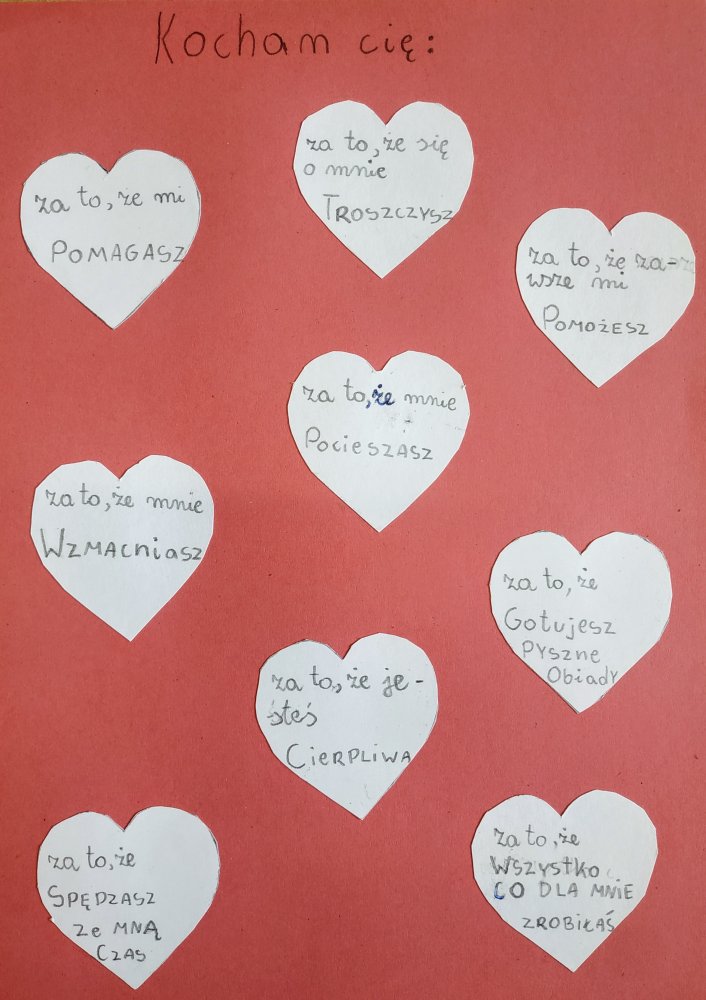 Kocham cię:
za to, że się
o mnie
TROSZCZYSZ
za to, że mi
POMAGASZ
za to, że za-
wsze mi
POMOŻESZ
za to, że mnie
PocieSZASZ
za to, że mnie
WZMACniASZ
za to, że
Gotujesz
PYSZNE
Obiady
za to, że je-
steś
CierPLIWA
za to, że
SPĘDZASZ
Ze MNĄ
CZAS
za to, że
WSZYSTKO
CO DLA MNIE
ZROBIŁAŚ